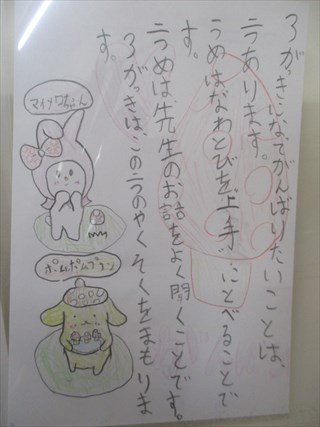 3がっきになってがんばりたいことは、
二つあります。
一つめはなわとびを上手にとべることで
す。
二つめは先生のお話をよく聞くことです。
3がっきは、この二つのやくそくをまもりま
す。
マイメロちゃん
ポムポムプリン